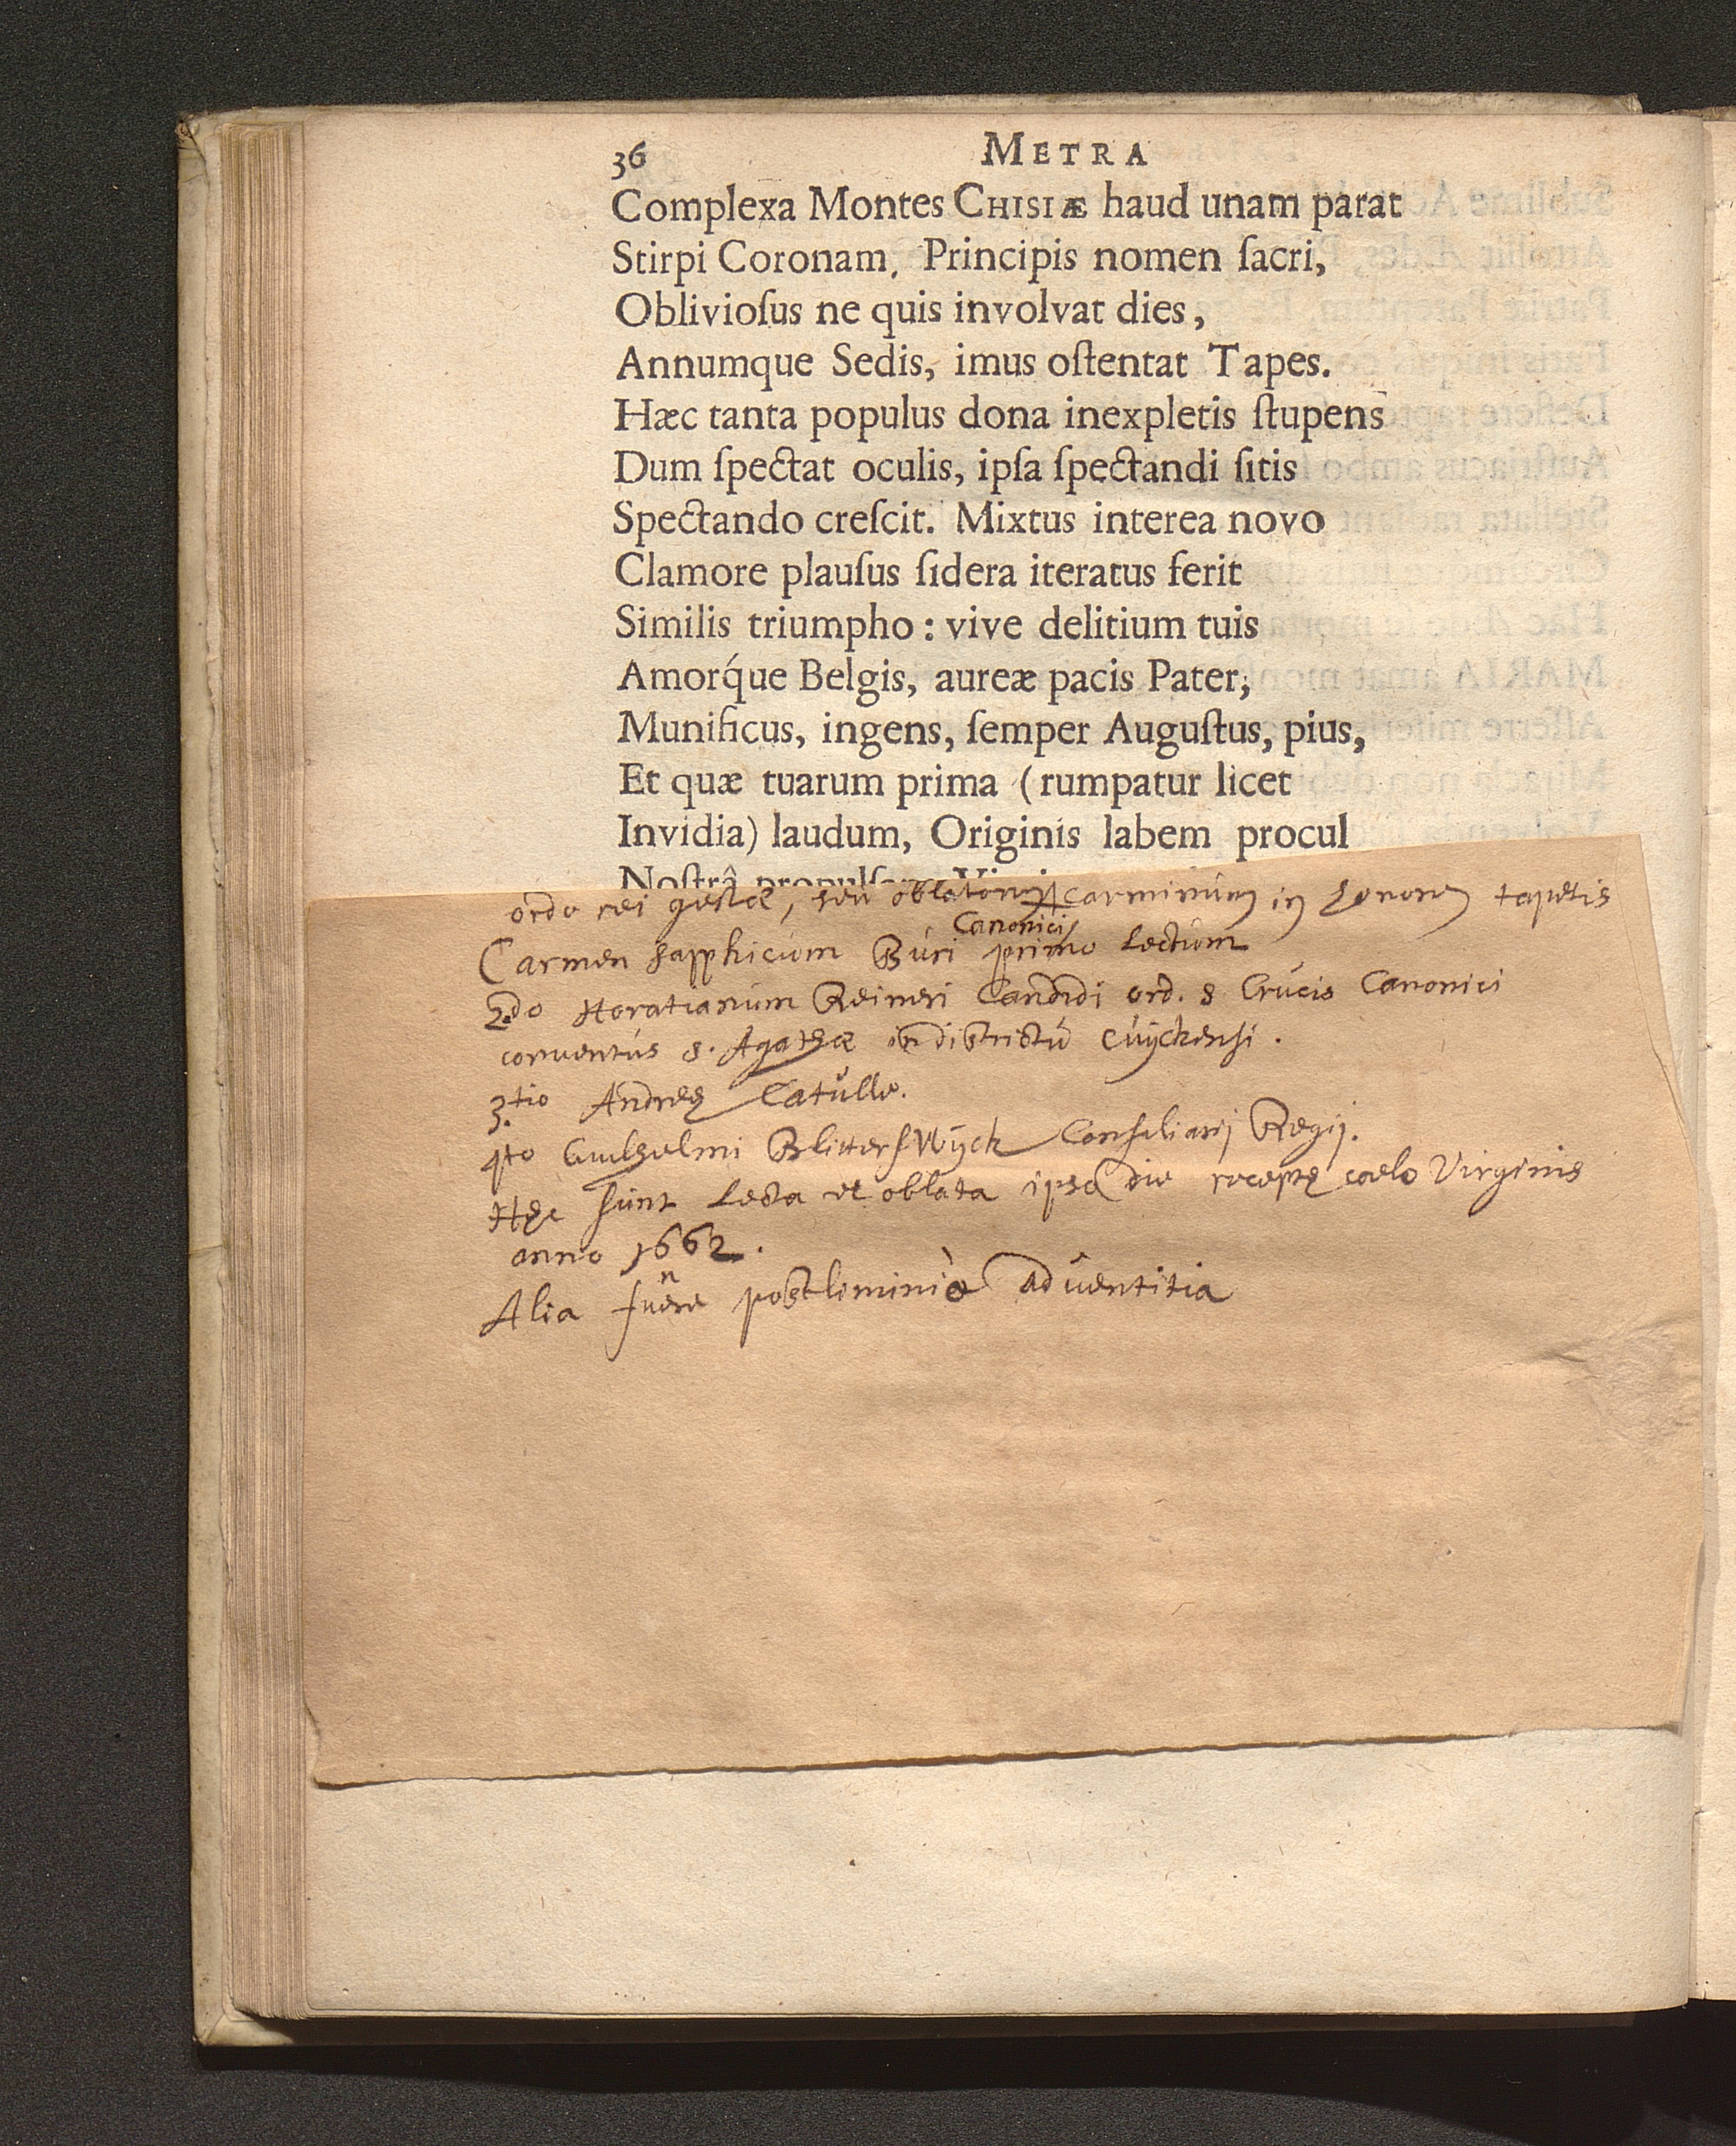 36 METRA
Complexa Montes CHISIÆ haud unam parat
Stirpi Coronam, Principis nomen ſacri,
Oblivioſus ne quis involvat dies,
Annumque Sedis, imus oſtentat Tapes.
Hæc tanta populus dona inexpletis ſtupens
Dum ſpectat oculis, ipſa ſpectandi ſitis
Spectando creſcit. Mixtus interea novo
Clamore plauſus ſidera iteratus ferit
Similis triumpho: vive delitium tuis
Amorq́ue Belgis, aureæ pacis Pater,
Munificus, ingens, ſemper Auguſtus, pius,
Et quæ tuarum prima (rumpatur licet
Invidia) laudum, Originis labem procul
Noſtrâ
ordo rei gestæ, seu oblatorum carminum in honorem tapetis
Canonici
Carmen sapphicum Buri primo lectum
2.do Horatianum Reineri Candidi ord. S Crucis Canonici
conventus S. Agathæ in districtu Cuyckensi.
3.tio Andreę Catulle.
4to Guilhelmi Blitterswyck Consiliarij Regij.
Hęc sunt lecta et oblata ipso die receptę coelo Virginis
anno 1662.
Alia fuere postliminio adventitia